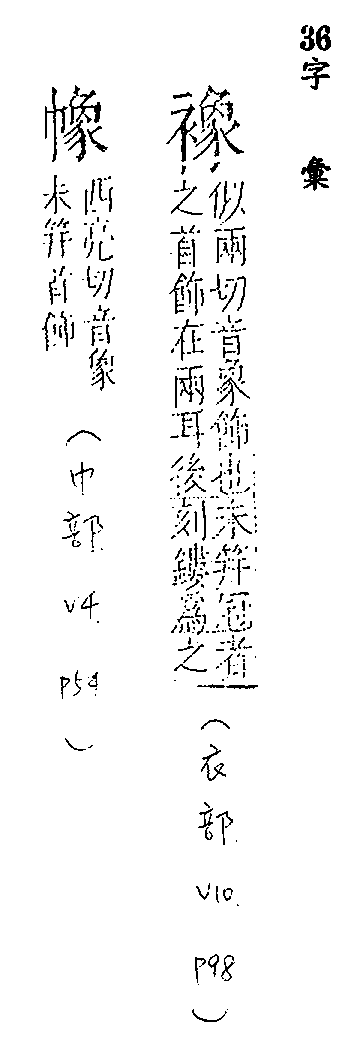 36字 彙
襐
似兩切音象飾也未筓冠者
之首飾在兩耳後刻鏤爲之
(衣部 V10. p98)
西亮切音像
未筓首飾
(巾部 V4. p54)